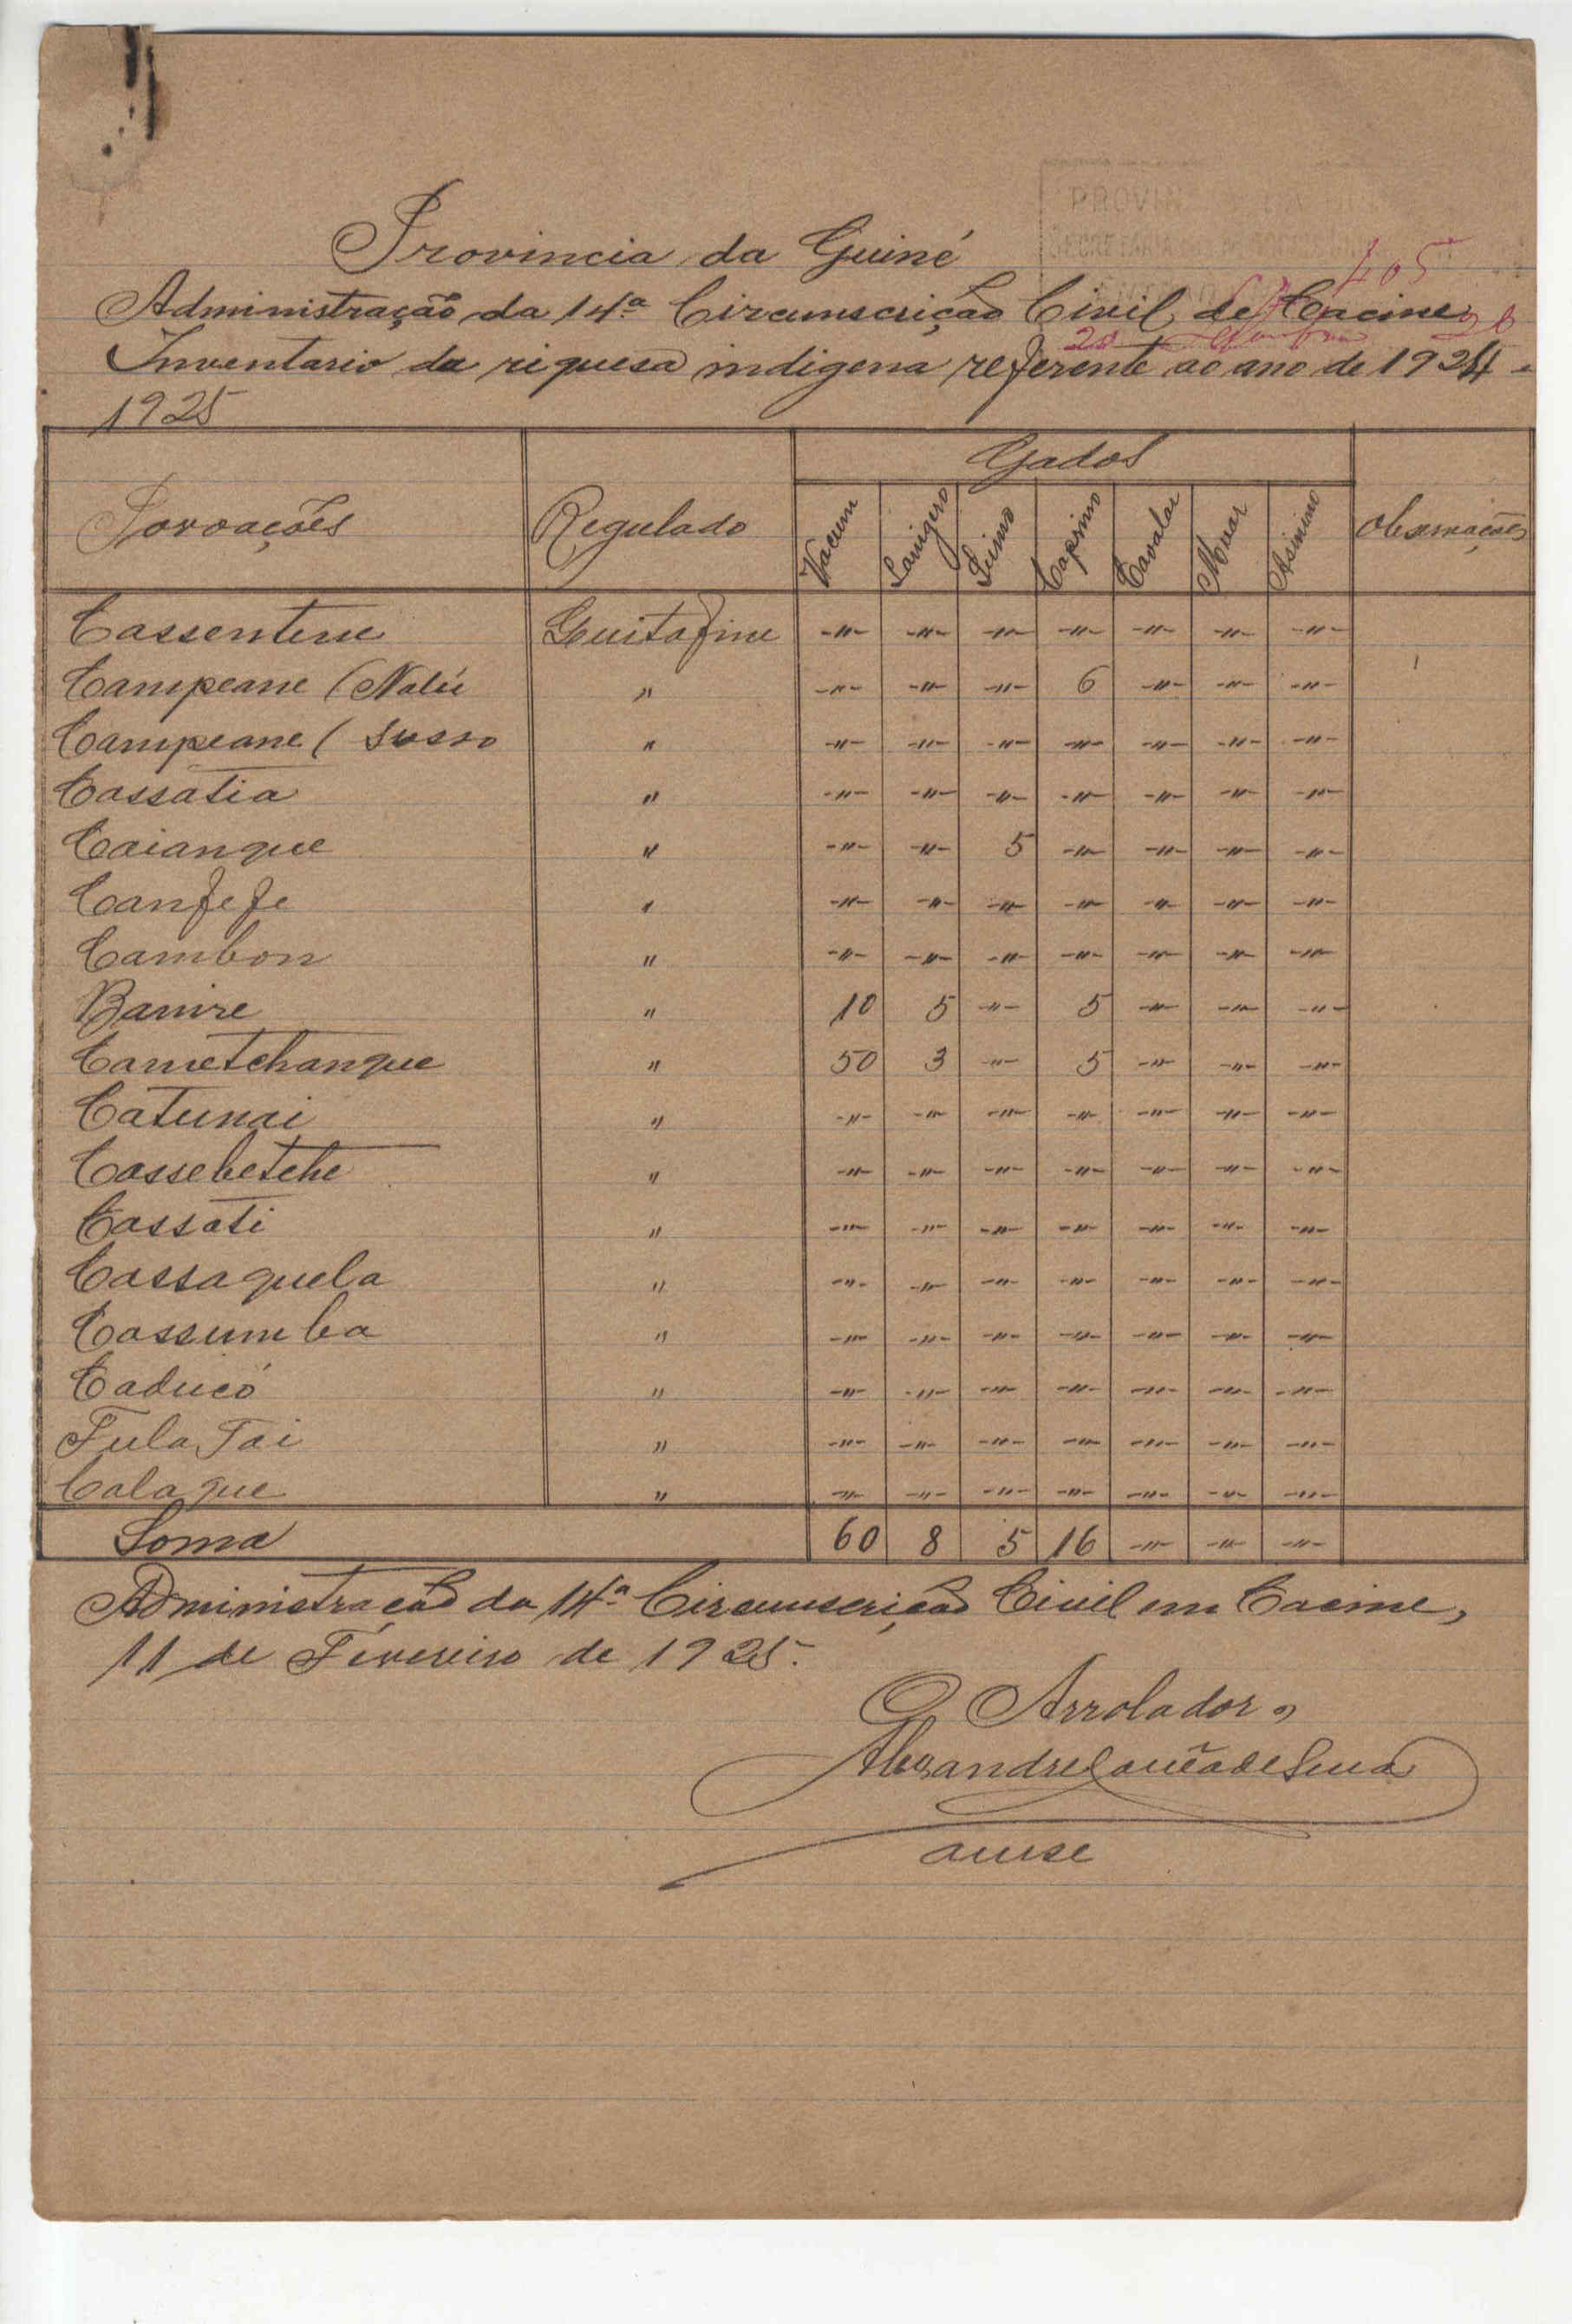 PROVIN
405
Provincia da Guiné
Administração da 14.ª Circumscrição Civil de Cacine
Inventario da riquesa indigena referente ao ano de 1924 -
1925
Povoações Regulado Gados Observações
Vacum Lanigero Suino Caprino Cavalar Muar Asinino
Cassentem Guitafine -"- -"- -"- -"- -"- -"- -"-
Campeane (Nalú " -"- -"- -"- 6 -"- -"- -"-
Campeane ( Susso " -"- -"- -"- -"- -"- -"- -"-
Cassatia " -"- -"- -"- -"- -"- -"- -"-
Caianque " -"- -"- 5 -"- -"- -"- -"-
Canfefe " -"- -"- -"- -"- -"- -"- -"-
Cambon " -"- -"- -"- -"- -"- -"- -"-
Banire " 10 5 -"- 5 -"- -"- -"-
Cametchanque " 50 3 -"- 5 -"- -"- -"-
Catunai " -"- -"- -"- -"- -"- -"- -"-
Cassebetche " -"- -"- -"- -"- -"- -"- -"-
Cassati " -"- -"- -"- -"- -"- -"- -"-
Cassaquela " -"- -"- -"- -"- -"- -"- -"-
Cassumba " -"- -"- -"- -"- -"- -"- -"-
Caducó " -"- -"- -"- -"- -"- -"- -"-
Fula Tai " -"- -"- -"- -"- -"- -"- -"-
Calaque " -"- -"- -"- -"- -"- -"- -"-
Soma 60 8 5 16 -"- -"- -"-
Administração da 14.ª Circumscrição Civil em Cacine,
11 de Fevereiro de 1925.
O Arrolador,
Alexandre